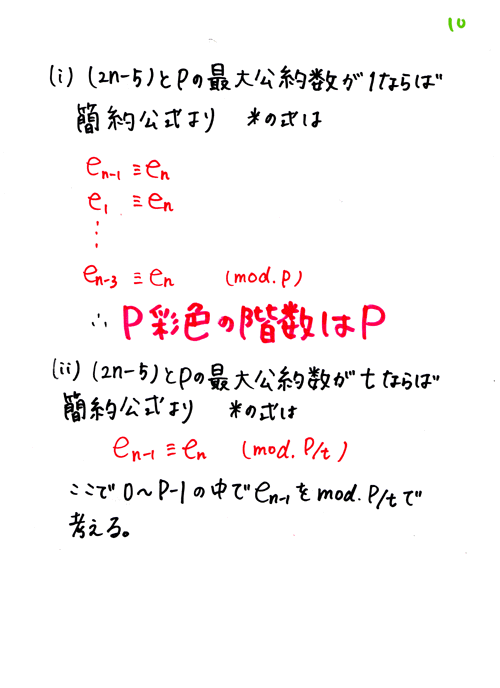 10
(i) (2n-5)とPの最大公約数が1ならば
簡約公式より *の式は
e_{n-1} ≡ e_n
e_1 ≡ e_n
⋮
e_{n-3} ≡ e_n (mod. P)
∴ P彩色の階数はP
(ii) (2n-5)とPの最大公約数がtならば
簡約公式より *の式は
e_{n-1} ≡ e_n (mod. P/t)
ここで 0~P-1の中でe_{n-1}をmod. P/tで
考える。